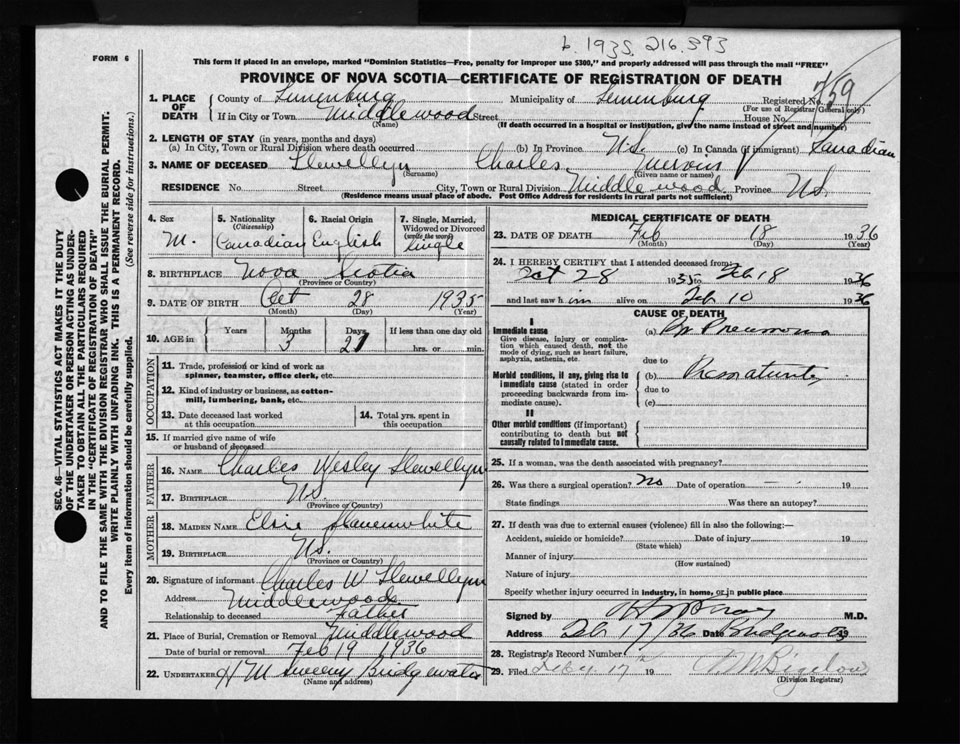 b. 1935. 216.393
FORM 6
This form if placed in an envelope, marked "Dominion Statistics—Free, penalty for improper use $300," and properly addressed will pass through the mail "FREE"
PROVINCE OF NOVA SCOTIA—CERTIFICATE OF REGISTRATION OF DEATH
1. PLACE OF DEATH
County of Lunenburg Municipality of Lunenburg Registered No. 759
(For use of Registrar General only)
If in City or Town Middlewood Street House No.
(Name) (If death occurred in a hospital or institution, give the name instead of street and number)
2. LENGTH OF STAY (in years, months and days)
(a) In City, Town or Rural Division where death occurred (b) In Province N.S. (c) In Canada (if immigrant) Canadian
3. NAME OF DECEASED Llewellyn Charles
(Surname) (Given name or names)
RESIDENCE No. Street City, Town or Rural Division Middlewood Province N.S.
(Residence means usual place of abode. Post Office Address for residents in rural parts not sufficient)
4. Sex M.
5. Nationality (Citizenship) Canadian
6. Racial Origin English
7. Single, Married, Widowed or Divorced (write the word) Single
8. BIRTHPLACE Nova Scotia
(Province or Country)
9. DATE OF BIRTH Oct 28 1935
(Month) (Day) (Year)
10. AGE in Years Months 3 Days 21 If less than one day old hrs. or min.
OCCUPATION
11. Trade, profession or kind of work as spinner, teamster, office clerk, etc.
12. Kind of industry or business, as cotton-mill, lumbering, bank, etc.
13. Date deceased last worked at this occupation
14. Total yrs. spent in this occupation
15. If married give name of wife or husband of deceased
FATHER
16. Name Charles Wesley Llewellyn
17. Birthplace N.S.
(Province or Country)
MOTHER
18. Maiden Name Elsie Slauenwhite
19. Birthplace N.S.
(Province or Country)
20. Signature of informant Charles W Llewellyn
Address Middlewood
Relationship to deceased Father
21. Place of Burial, Cremation or Removal Middlewood
Date of burial or removal Feb 19 1936
22. UNDERTAKER Bridgewater
(Name and address)
MEDICAL CERTIFICATE OF DEATH
23. DATE OF DEATH Feb 18 1936
(Month) (Day) (Year)
24. I HEREBY CERTIFY that I attended deceased from
Oct 28 1935 to Feb 18 1936
and last saw him alive on Feb 10 1936
CAUSE OF DEATH
I
Immediate cause
Give disease, injury or complication which caused death, not the mode of dying, such as heart failure, asphyxia, asthenia, etc.
(a) Br Pneumonia
due to
Morbid conditions, if any, giving rise to immediate cause (stated in order proceeding backwards from immediate cause).
(b) Prematurity
due to
(c)
II
Other morbid conditions (if important) contributing to death but not causally related to immediate cause.
25. If a woman, was the death associated with pregnancy?
26. Was there a surgical operation? No Date of operation — 19
State findings Was there an autopsy?
27. If death was due to external causes (violence) fill in also the following:—
Accident, suicide or homicide? Date of injury 19
(State which)
Manner of injury
(How sustained)
Nature of injury
Specify whether injury occurred in industry, in home, or in public place
Signed by M.D.
Address Feb 17/36 Date Bridgewater 19
28. Registrar's Record Number
29. Filed 17 19 Bigelow
(Division Registrar)
SEC. 46—VITAL STATISTICS ACT MAKES IT THE DUTY
OF THE UNDERTAKER OR PERSON ACTING AS UNDER-
TAKER TO OBTAIN ALL THE PARTICULARS REQUIRED
IN THE "CERTIFICATE OF REGISTRATION OF DEATH"
AND TO FILE THE SAME WITH THE DIVISION REGISTRAR WHO SHALL ISSUE THE BURIAL PERMIT.
WRITE PLAINLY WITH UNFADING INK. THIS IS A PERMANENT RECORD.
Every item of information should be carefully supplied. (See reverse side for instructions.)